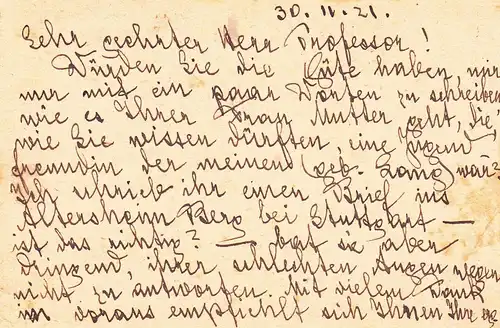 30.11.21.
Sehr geehrter Herr Professor!
Würden Sie die Güte haben, mir
nur mit ein paar Worten zu schreiben
wie es Ihrer Frau Mutter geht, die,
wie Sie wissen dürften, eine Jugend
freundin der meinen (geb. Lang) war.
Ich schrieb ihr einen Brief ins
Altersheim Berg bei Stuttgart —
ist das richtig? — bat sie aber
dringend, ihrer schlechten Augen wegen
nicht zu antworten. Mit vielem Dank
im voraus empfiehlt sich Ihnen Ihre